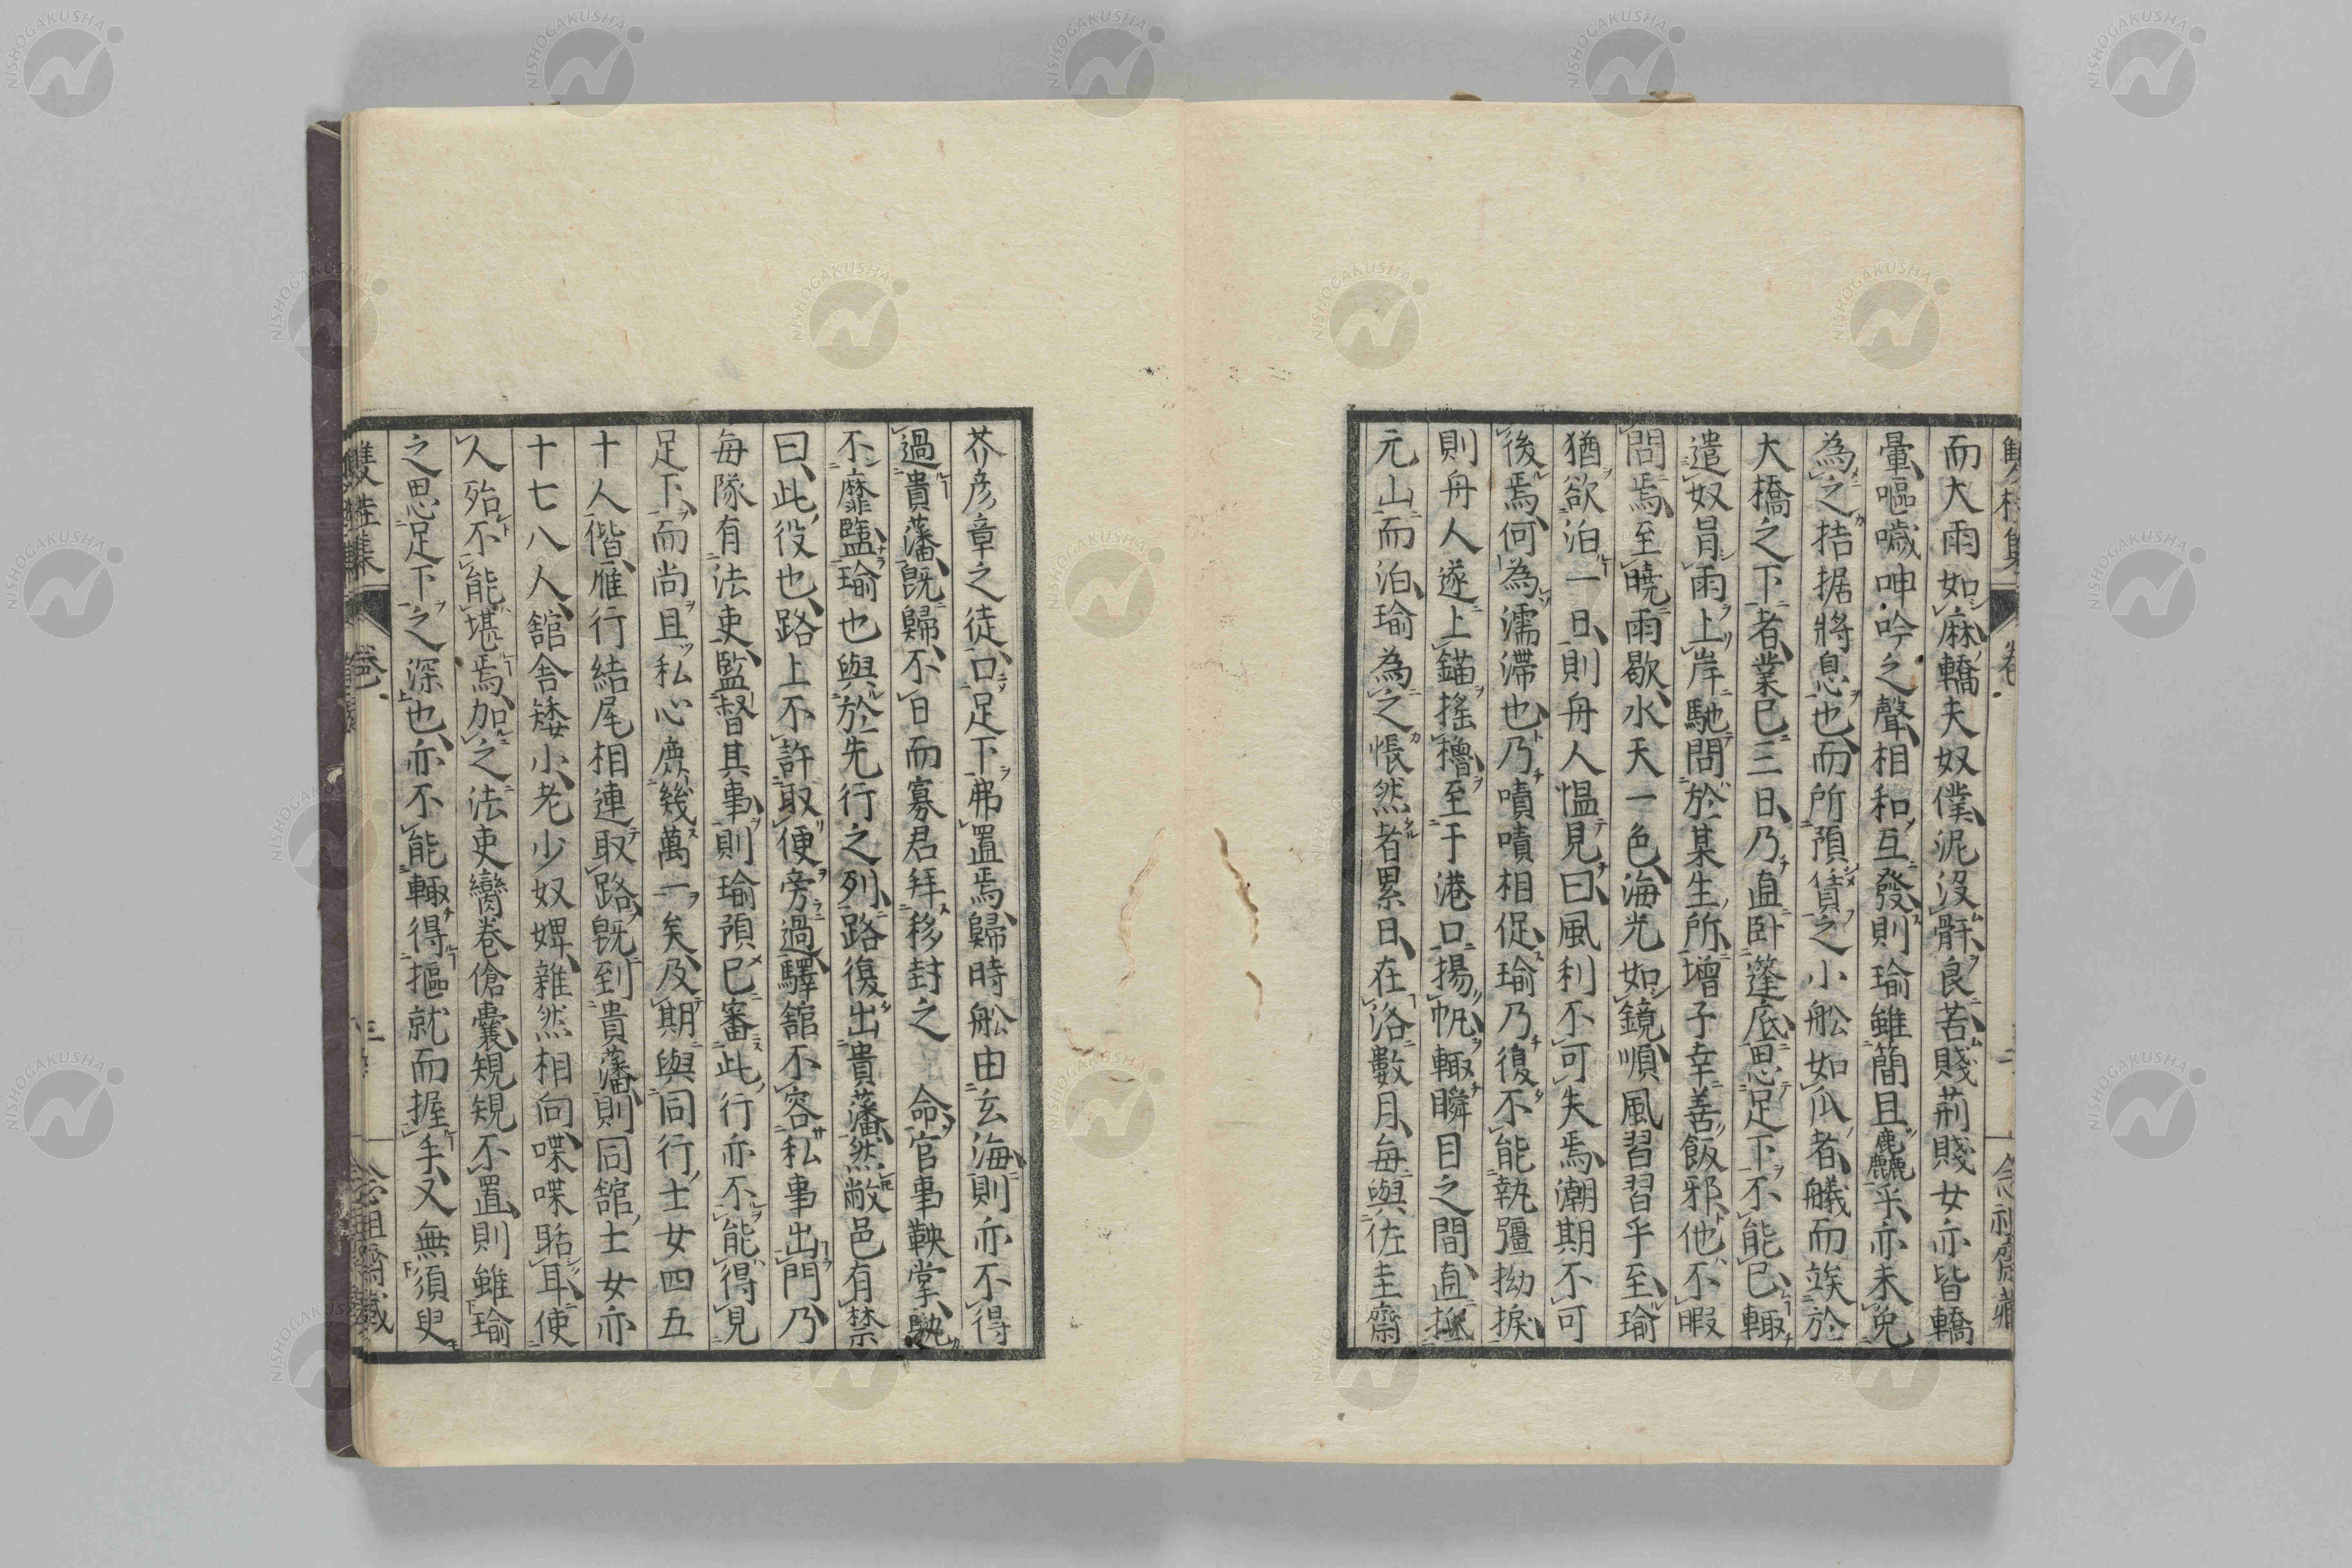 而大雨如麻轎夫奴僕泥沒骭良苦賤荊賤女亦皆轎
暈嘔噦呻吟之聲相和互發則瑜雖簡且麤乎亦未免
為之拮据將息也而所預賃之小舩如瓜者艤而竢於
大橋之下者業已三日乃直臥篷底思足下不能已輙
遣奴員雨上岸馳問於某生所增子幸善飯邪他不暇
問焉至曉雨歇水天一色海光如鏡順風習習乎至瑜
猶欲泊一日則舟人慍見曰風利不可失焉潮期不可
後焉何為濡滯也乃嘖嘖相促瑜乃復不能執彊拗捩
則舟人遂上錨搖櫓至于港口揚帆輙瞬目之間直
元山而泊瑜為之悵然者累日在洛數月每與佐圭齋
芥彥章之徒口足下弗置焉歸時舩由玄海則亦不得
過貴藩旣歸不日而寡君拜移封之命官事鞅掌
不靡盬瑜也與於先行之列路復出貴藩然敝邑有禁
曰此役也路上不許取便旁過驛舘不容私事出門乃
每隊有法吏監督其事則瑜預已審此行亦不能得見
足下而尚且私心庶幾萬一矣及期與同行士女四五
十人偕雁行結尾相連取路旣到貴藩則同舘士女亦
十七八人舘舍矮小老少奴婢雜然相向喋喋聒耳使
人殆不能堪焉加之法吏臠卷傖囊規規不置則雖瑜
之思足下之深也亦不能輙得摳就而握手又無須臾
雙桂集
卷